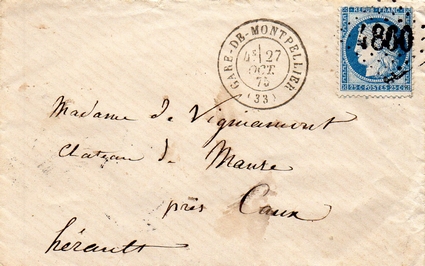 REPUB. FRANC.
4800
GARE-DE-MONTPELLIER
4E
27
OCT.
75
(33)
25 C. POSTES 25 C.
Madame de Vigniamont
Chateau de Mause
près Caux
hérault